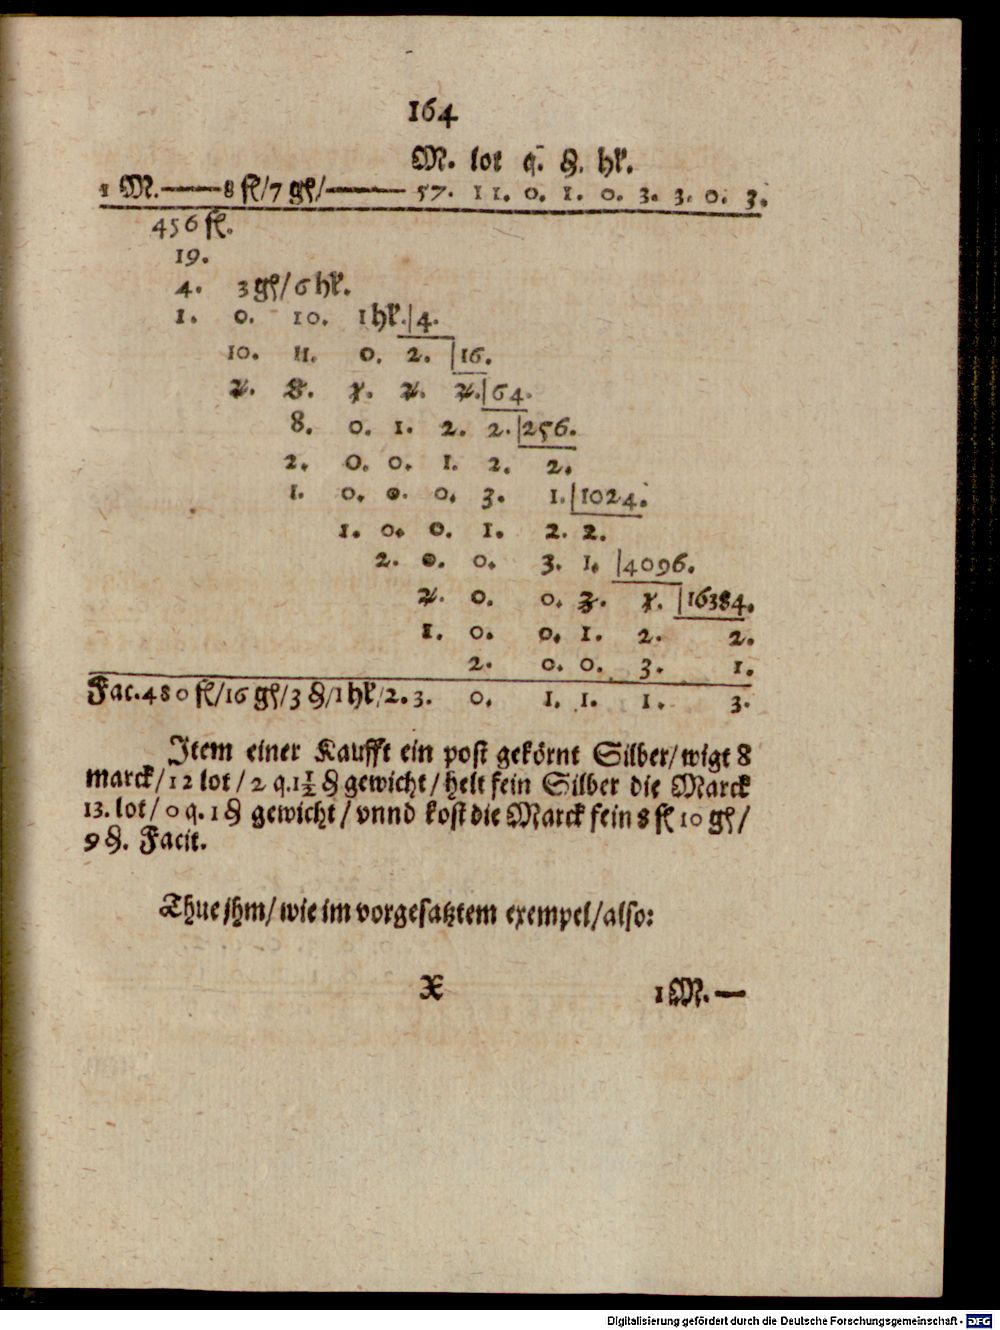 164
M. lot q̄. ₰. hl̄.
1 M.——8 fl/7 gß/——57. 11. 0. 1. 0. 3. 3. 0. 3.
456 fl.
19.
4. 3 gß/6 hl̄.
1. 0. 10. 1 hl̄.|4.
10. 11. 0. 2. |16.
2. 8. 1. 2. 2.|64.
8. 0. 1. 2. 2.|256.
2. 0. 0. 1. 2. 2.
1. 0. 0. 0. 3. 1.|1024.
1. 0. 0. 1. 2. 2.
2. 0. 0. 3. 1. |4096.
2. 0. 0. 3. 1. |16384.
1. 0. 0. 1. 2. 2.
2. 0. 0. 3. 1.
Fac.480 fl/16 gß/3 ₰/1 hl̄/2. 3. 0. 1. 1. 1. 3.
Item einer Kaufft ein post gekörnt Silber/wigt 8
marck/12 lot/2 q.1½ ₰ gewicht/helt fein Silber die Marck
13. lot/0 q. 1 ₰ gewicht/vnnd kost die Marck fein 8 fl 10 gß/
9 ₰. Facit.
Thue jhm/wie im vorgesatztem exempel/also:
X 1 M.—
Digitalisierung gefördert durch die Deutsche Forschungsgemeinschaft - DFG